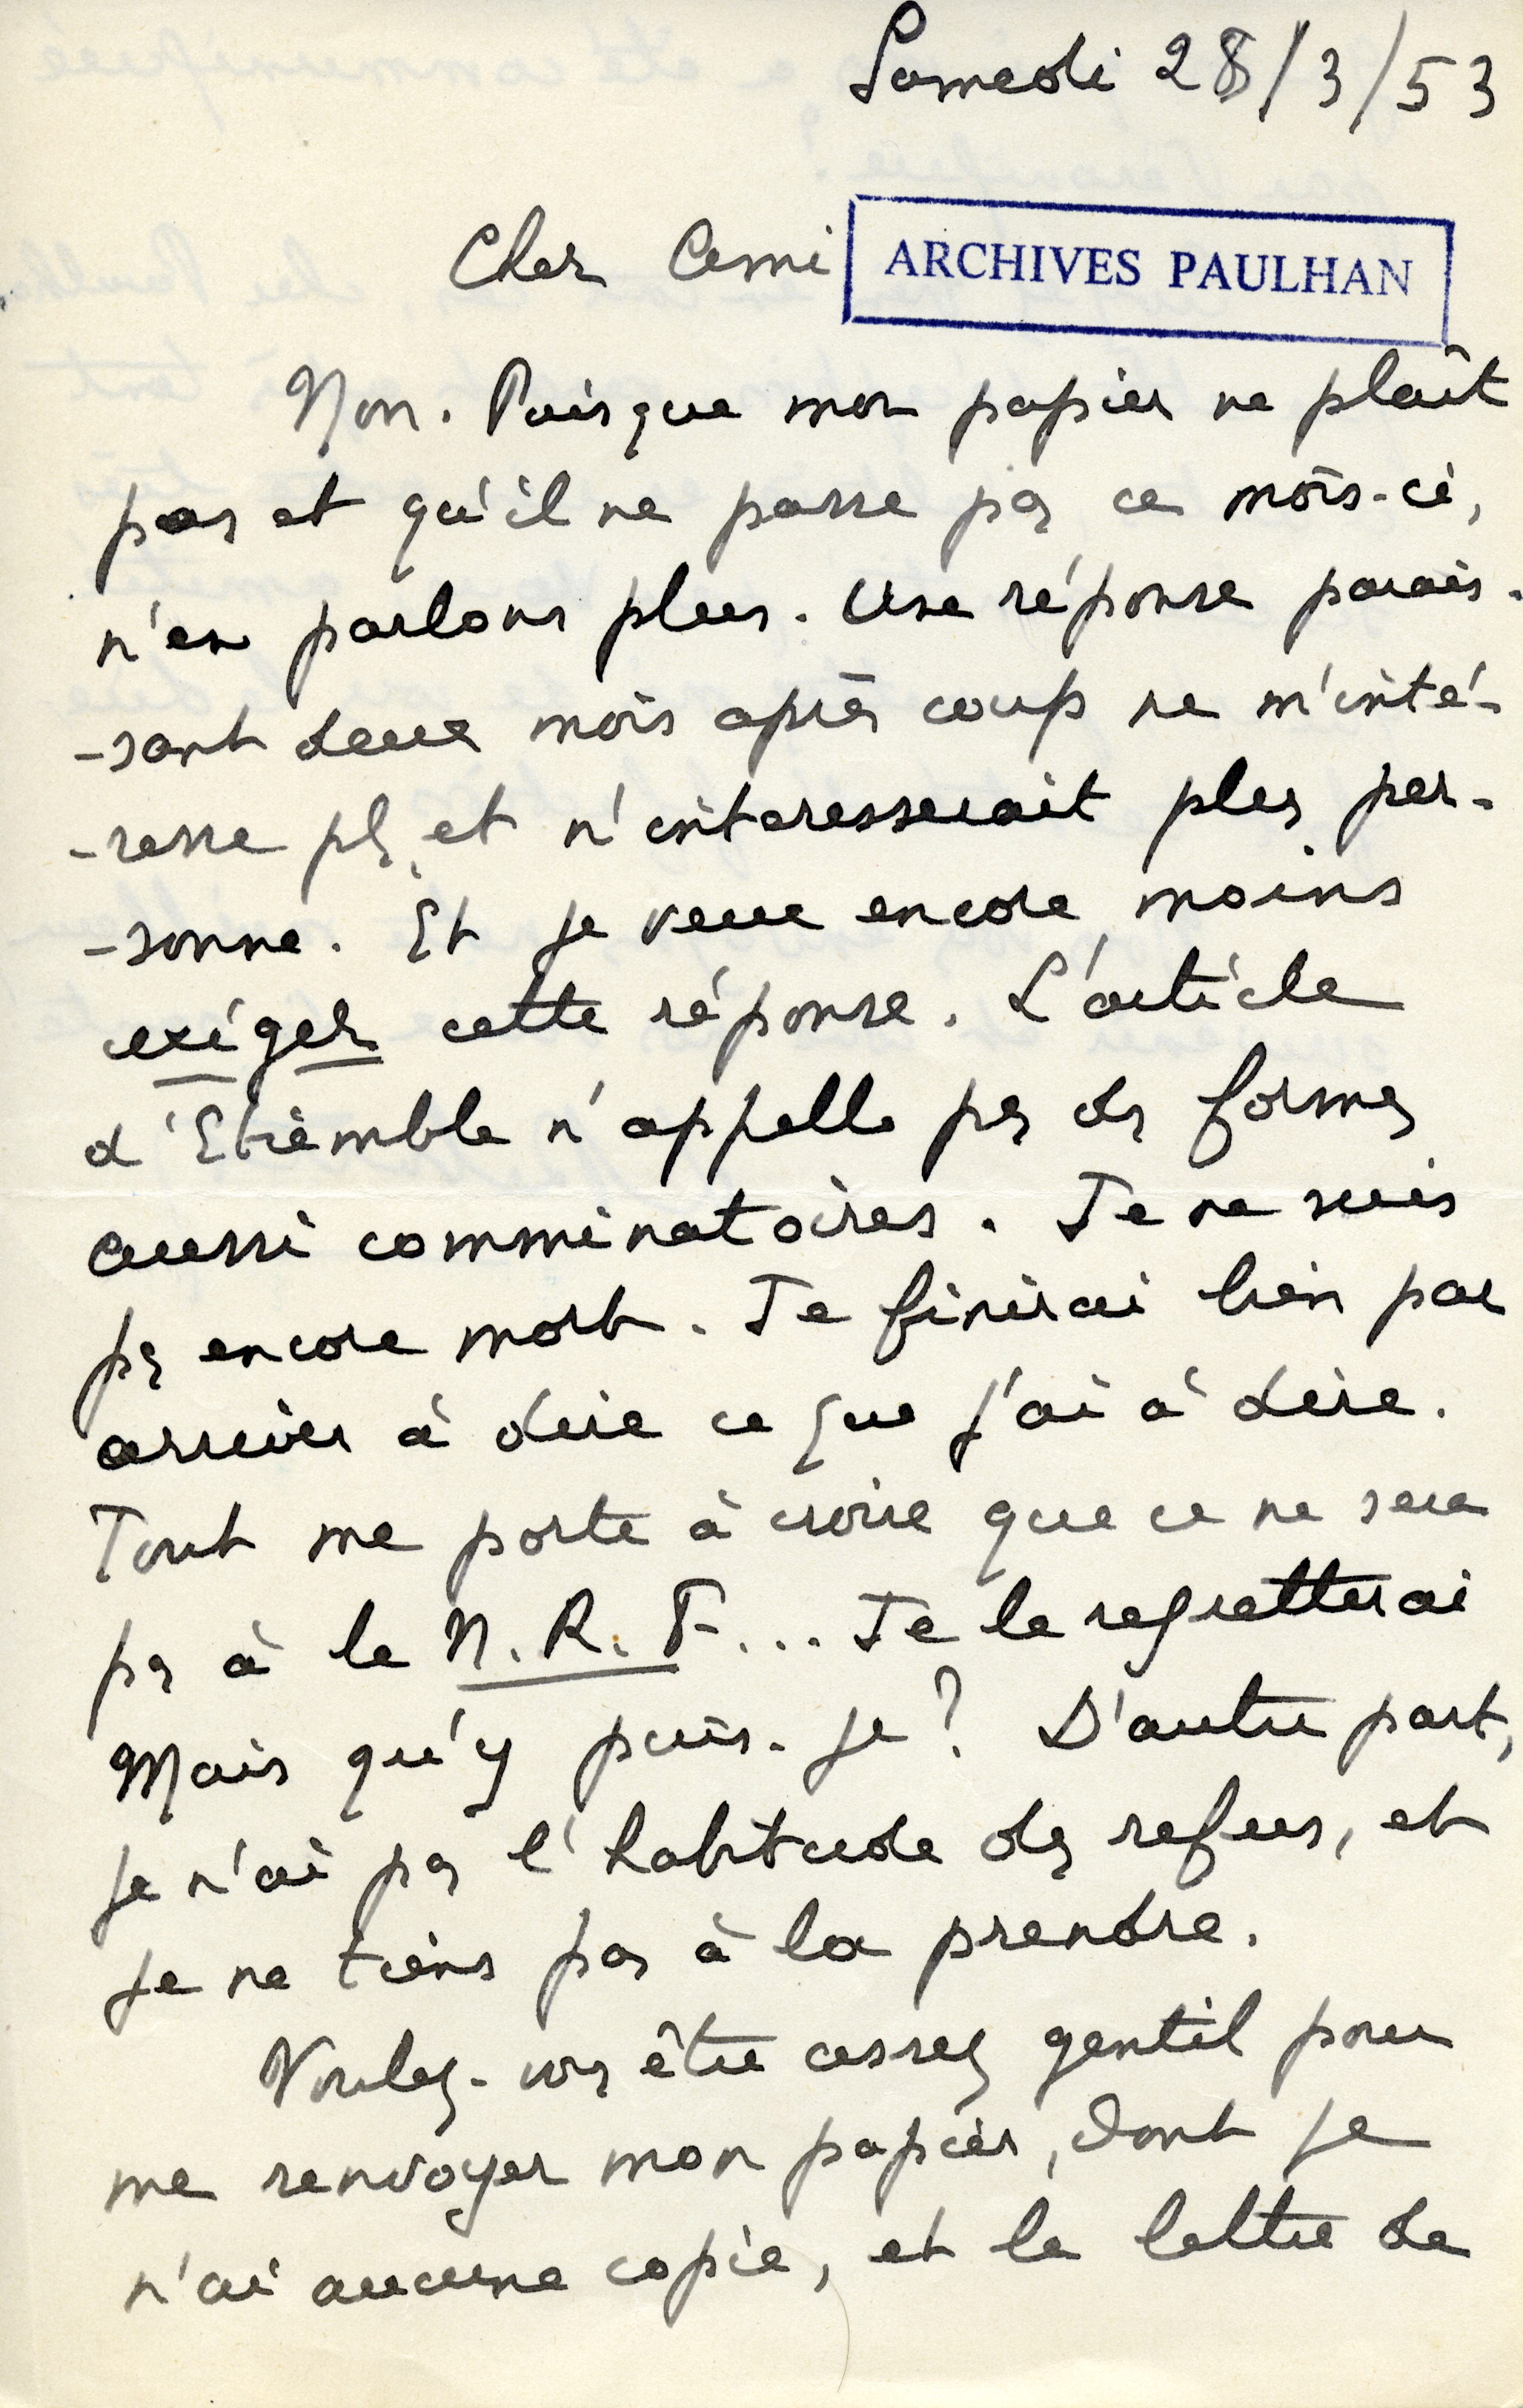 Samedi 28/3/53
Cher Ami
ARCHIVES PAULHAN
Non. Puisque mon papier ne plaît
pas et qu'il ne passe pas ce mois-ci,
n'en parlons plus. Une réponse parais-
-sant deux mois après coup ne m'inté-
-resse pls et n'interesserait plus per-
-sonne. Et je veux encore moins
exiger cette réponse. L'article
d'Etiemble n'appelle pas des formes
aussi comminatoires. Je ne suis
pas encore mort. Je finirai bien par
arriver à dire ce que j'ai à dire.
Tout me porte à croire que ce ne sera
pas à la N.R.F... Je le regretterai
Mais qu'y puis-je ? D'autre part,
je n'ai pas l'habitude des refus, et
je ne tiens pas à la prendre.
Voulez-vous être assez gentil pour
me renvoyer mon papier, dont je
n'ai aucune copie, et la lettre de